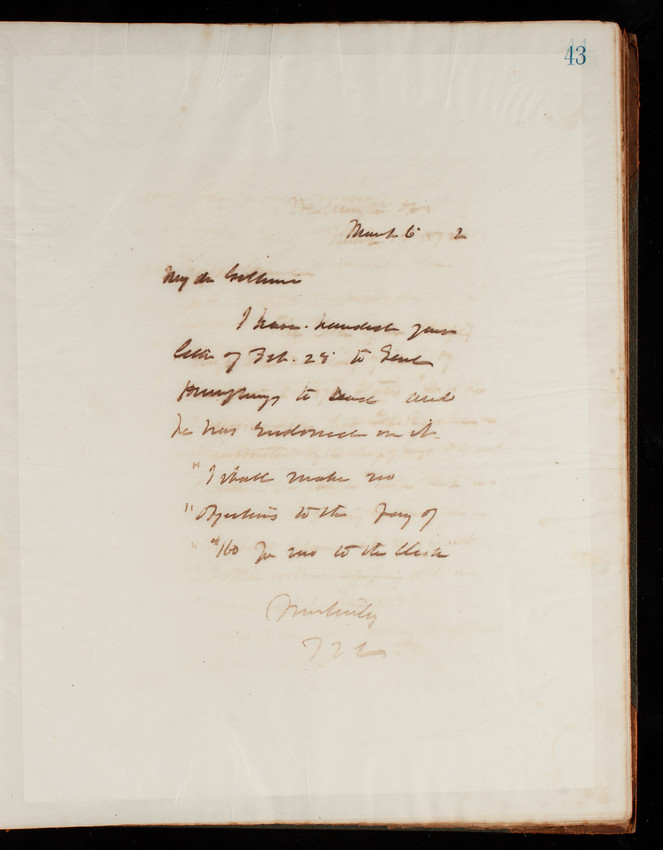 43
March 6 2
My dr
I have handed your
letter of Feb. 28 to Genl
Humphreys to read and
he has endorsed on it
"I shall make no
"objections to the pay of
" $160 per mo to the Clerk"
Truly
T L C